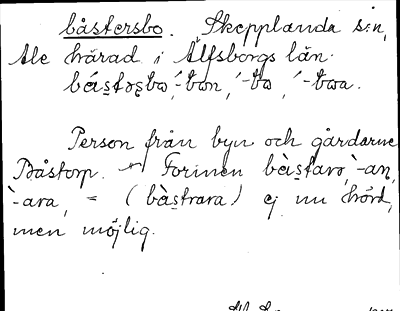 båstersbo. Skepplanda s:n,
Ale härad i Älfsborgs län.
-bωn, -bω, -bωa.
Person från byn och gårdarne
Båstorp. Formen bàstarω, -an,
-ara, = (bàstrara) ej nu hörd,
men möjlig.